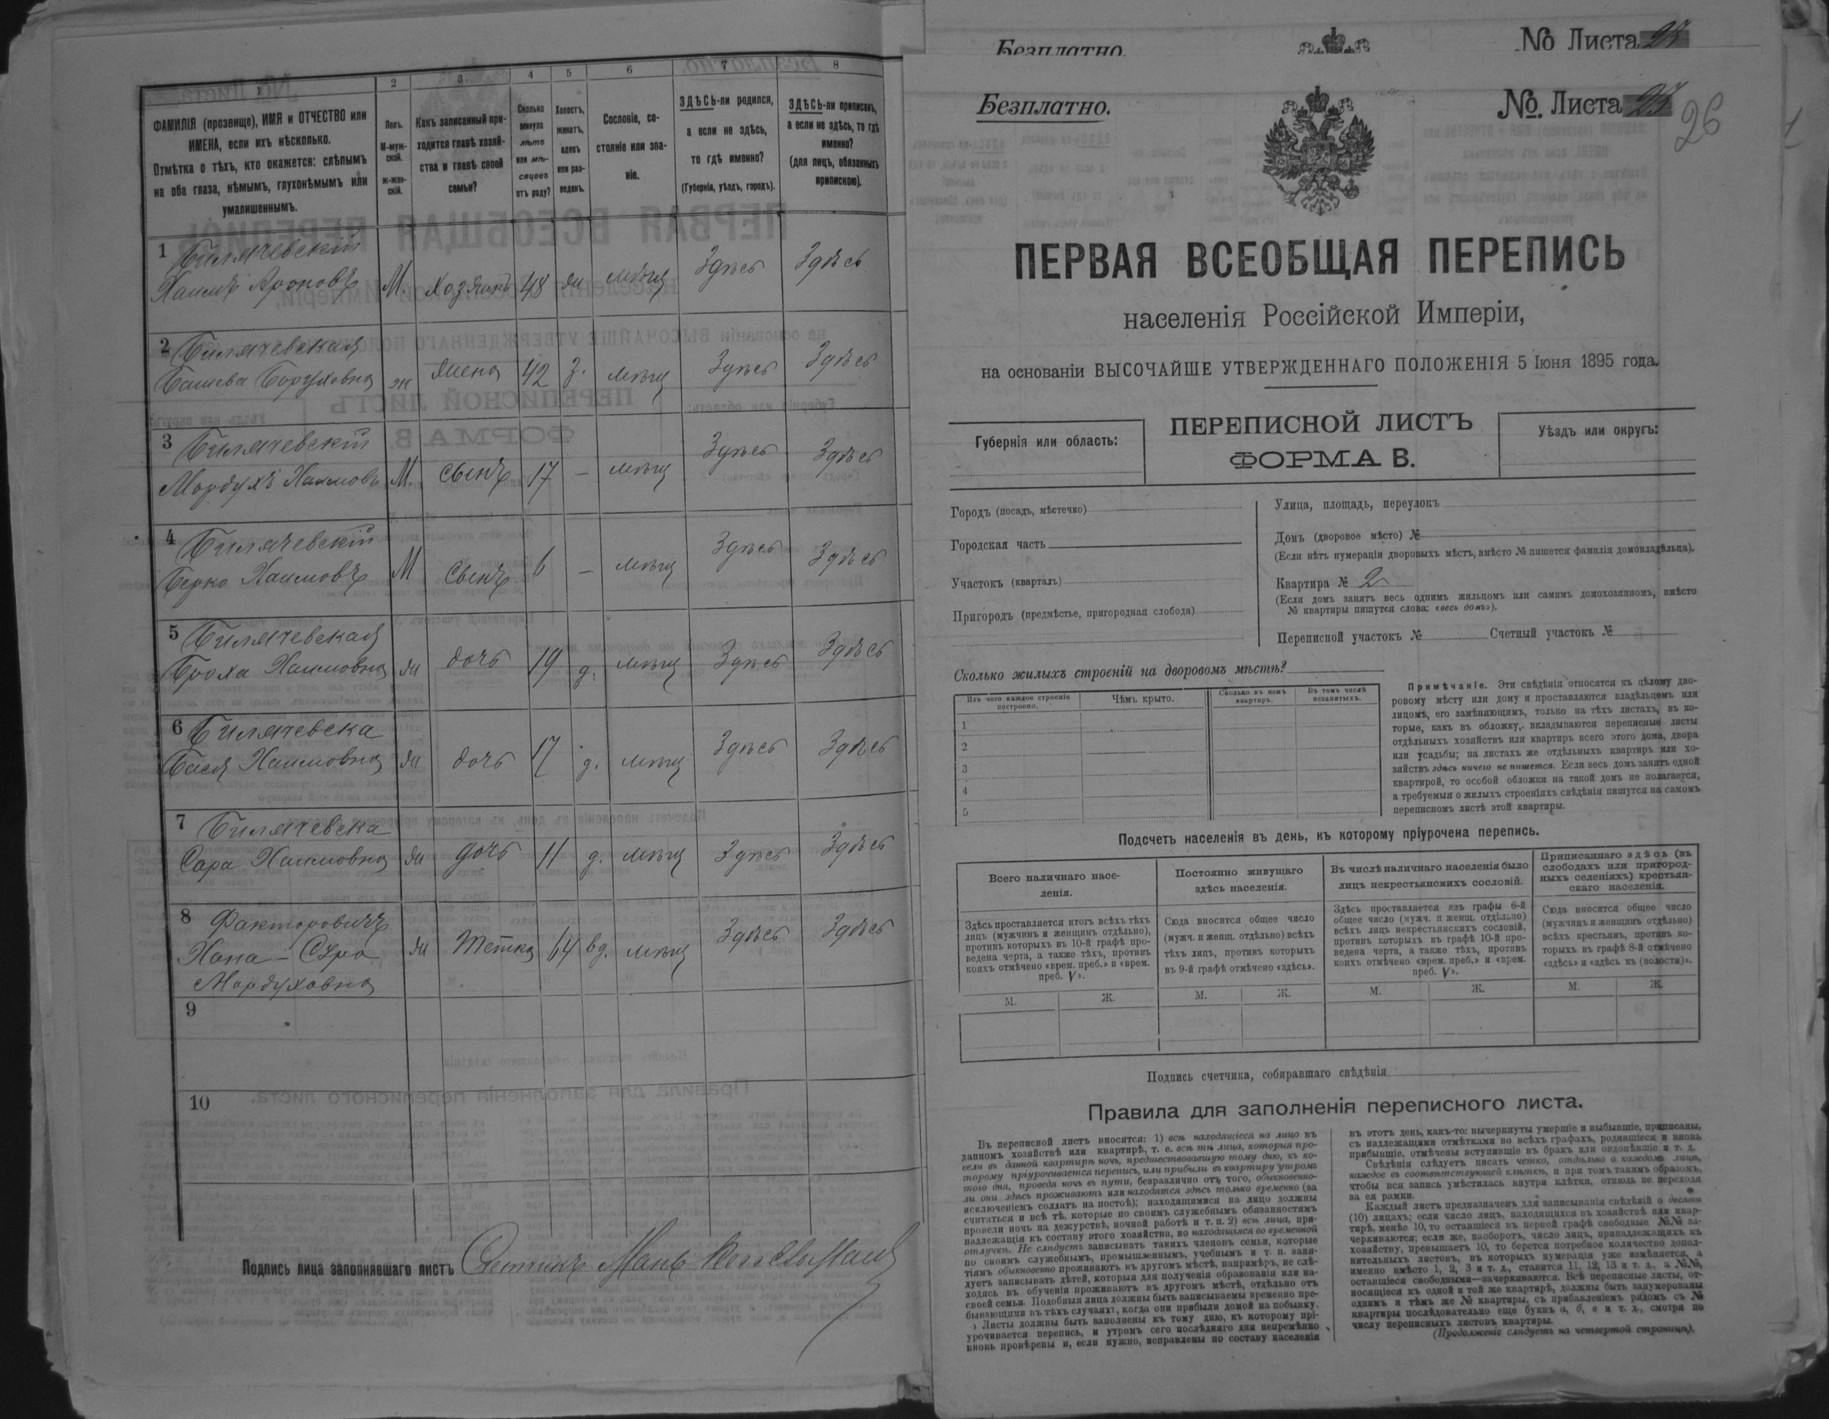 1
2
3
4
5
6
7
8
ФАМИЛІЯ (прозвище), ИМЯ и ОТЧЕСТВО или
ИМЕНА, если ихъ нѣсколько.
Отмѣтка о тѣхъ, кто окажется: слѣпымъ
на оба глаза, нѣмымъ, глухонѣмымъ или
умалишеннымъ.
Полъ.
М-муж-
ской.
ж-жен-
скій.
Какъ записанный при-
ходится главѣ хозяй-
ства и главѣ своей
семьи?
Сколько
минуло
лѣтъ
или мѣ-
сяцевъ
отъ роду?
Холостъ,
женатъ,
вдовъ
или раз-
веденъ.
Сословіе, со-
стояніе или зва-
ніе.
ЗДѢСЬ-ли родился,
а если не здѣсь,
то гдѣ именно?
(Губернія, уѣздъ, городъ).
ЗДѢСЬ-ли приписанъ,
а если не здѣсь, то гдѣ
именно?
(для лицъ, обязанныхъ
припискою).
1 Билячевскій
Хаимъ Ароновъ М. хозяинъ 48 мѣщ Здѣсь Здѣсь
2 Билячевская
Башева Боруховна ж жена 42 З. мѣщ Здѣсь Здѣсь
3 Билячевскій
Мордухъ Хаимовъ М. сынъ 17 – мѣщ Здѣсь Здѣсь
4 Билячевскій
Берко Хаимовъ М сынъ 6 – мѣщ Здѣсь Здѣсь
5 Билячевская
Броха Хаимовна ж дочь 19 д. мѣщ Здѣсь Здѣсь
6 Билячевска
Бася Хаимовна ж дочь 17 д. мѣщ Здѣсь Здѣсь
7 Билячевска
Сара Хаимовна ж дочь 11 д. мѣщ Здѣсь Здѣсь
8 Факторовичъ
Хана-Сура ж Тетка 64 вд. мѣщ Здѣсь Здѣсь
Мордуховна
9
10
Подпись лица заполнявшаго листъ Счетчикъ
Безплатно.
No Листа 25
Безплатно.
No. Листа 25
26
ПЕРВАЯ ВСЕОБЩАЯ ПЕРЕПИСЬ
населенія Россійской Имперіи,
на основаніи ВЫСОЧАЙШЕ УТВЕРЖДЕННАГО ПОЛОЖЕНІЯ 5 Іюня 1895 года.
Губернія или область:
ПЕРЕПИСНОЙ ЛИСТЪ
ФОРМА В.
Уѣздъ или округъ:
Городъ (посадъ, мѣстечко)
Городская часть
Участокъ (кварталъ)
Пригородъ (предмѣстье, пригородная слобода)
Улица, площадь, переулокъ
Домъ (дворовое мѣсто) №
(Если нѣтъ нумераціи дворовыхъ мѣстъ, вмѣсто № пишется фамилія домовладѣльца).
Квартира № 2
(Если домъ занятъ весь однимъ жильцомъ или самимъ домохозяиномъ, вмѣсто
№ квартиры пишутся слова: «весь домъ»).
Переписной участокъ № Счетный участокъ №
Сколько жилыхъ строеній на дворовомъ мѣстѣ?
Изъ чего каждое строеніе
построено.
Чѣмъ крыто.
Сколько въ немъ
квартиръ.
Въ томъ числѣ
незанятыхъ.
1
2
3
4
5
Примѣчаніе. Эти свѣдѣнія относятся къ цѣлому дво-
ровому мѣсту или дому и проставляются владѣльцемъ или
лицомъ, его замѣняющимъ, только на тѣхъ листахъ, въ ко-
торые, какъ въ обложку, вкладываются переписные листы
отдѣльныхъ хозяйствъ или квартиръ всего этого дома, двора
или усадьбы; на листахъ же отдѣльныхъ квартиръ или хо-
зяйствъ здѣсь ничего не пишется. Если весь домъ занятъ одной
квартирой, то особой обложки на такой домъ не полагается,
а требуемыя о жилыхъ строеніяхъ свѣдѣнія пишутся на самомъ
переписномъ листѣ этой квартиры.
Подсчетъ населенія въ день, къ которому пріурочена перепись.
Всего наличнаго насе-
ленія.
Постоянно живущаго
здѣсь населенія.
Въ числѣ наличнаго населенія было
лицъ некрестьянскихъ сословій.
Приписаннаго здѣсь (въ
слободахъ или пригород-
ныхъ селеніяхъ) крестьян-
скаго населенія.
Здѣсь проставляется итогъ всѣхъ тѣхъ
лицъ (мужчинъ и женщинъ отдѣльно),
противъ которыхъ въ 10-й графѣ про-
ведена черта, а также тѣхъ, противъ
коихъ отмѣчено «врем. преб.» и «врем.
преб. V».
Сюда вносится общее число
(мужч. и женщ. отдѣльно) всѣхъ
тѣхъ лицъ, противъ которыхъ
въ 9-й графѣ отмѣчено «здѣсь».
Здѣсь проставляется изъ графы 6-й
общее число (мужч. и женщ. отдѣльно)
всѣхъ лицъ некрестьянскихъ сословій,
противъ которыхъ въ графѣ 10-й про-
ведена черта, а также тѣхъ, противъ
коихъ отмѣчено «врем. преб.» и «врем.
преб. V».
Сюда вносится общее число
(мужчинъ и женщинъ отдѣльно)
всѣхъ крестьянъ, противъ ко-
торыхъ въ графѣ 8-й отмѣчено
«здѣсь» и «здѣсь къ (волости)».
М. Ж. М. Ж. М. Ж. М. Ж.
Подпись счетчика, собиравшаго свѣдѣнія
Правила для заполненія переписного листа.
Въ переписной листъ вносятся: 1) всѣ находящіеся на лицо въ
данномъ хозяйствѣ или квартирѣ, т. е. всѣ тѣ лица, которыя про-
вели въ данной квартирѣ ночь, предшествовавшую тому дню, къ ко-
торому пріурочивается перепись, или прибыли въ квартиру утромъ
того дня, проведя ночь въ пути, безразлично отъ того, обыкновенно-
ли они здѣсь проживаютъ или находятся здѣсь только временно (за
исключеніемъ солдатъ на постоѣ); находящимися на лицо должны
считаться и всѣ тѣ, которые по своимъ служебнымъ обязанностямъ
провели ночь на дежурствѣ, ночной работѣ и т. п. 2) всѣ лица, при-
надлежащія къ составу этого хозяйства, но находящіяся во временной
отлучкѣ. Не слѣдуетъ записывать такихъ членовъ семьи, которые
по своимъ служебнымъ, промышленнымъ, учебнымъ и т. п. заня-
тіямъ обыкновенно проживаютъ въ другомъ мѣстѣ, напримѣръ, не слѣ-
дуетъ записывать дѣтей, которыя для полученія образованія или на-
ходясь въ обученіи проживаютъ въ другомъ мѣстѣ, отдѣльно отъ
своей семьи. Подобныя лица должны быть записываемы временно пре-
бывающими въ тѣхъ случаяхъ, когда они прибыли домой на побывку.
Листы должны быть заполнены къ тому дню, къ которому прі-
урочивается перепись, и утромъ сего послѣдняго дня непремѣнно
вновь провѣрены и, если нужно, исправлены по составу населенія
въ этотъ день, какъ-то: вычеркнуты умершіе и выбывшіе, приписаны,
съ надлежащими отмѣтками во всѣхъ графахъ, родившіеся и вновь
прибывшіе, отмѣчены вступившіе въ бракъ или овдовѣвшіе и т. д.
Свѣдѣнія слѣдуетъ писать четко, отдѣльно о каждомъ лицѣ,
каждое въ соотвѣтствующей клѣткѣ, и при томъ такимъ образомъ,
чтобы вся запись умѣстилась внутри клѣтки, отнюдь не переходя
за ея рамки.
Каждый листъ предназначенъ для записыванія свѣдѣній о десяти
(10) лицахъ; если число лицъ, находящихся въ хозяйствѣ или квар-
тирѣ, менѣе 10, то оставшіеся въ первой графѣ свободные №№ за-
черкиваются; если же, наоборотъ, число лицъ, принадлежащихъ къ
хозяйству, превышаетъ 10, то берется потребное количество допол-
нительныхъ листовъ, въ которыхъ нумерація уже измѣняется, а
именно вмѣсто 1, 2, 3 и т. д., ставится 11, 12, 13 и т. д., а №№,
оставшіеся свободными—зачеркиваются. Всѣ переписные листы, от-
носящіеся къ одной и той же квартирѣ, должны быть занумерованы
однимъ и тѣмъ же № квартиры, съ прибавленіемъ рядомъ съ №
квартиры послѣдовательно еще буквъ а, б, в и т. д., смотря по
числу переписныхъ листовъ квартиры.
(Продолженіе слѣдуетъ на четвертой страницѣ).